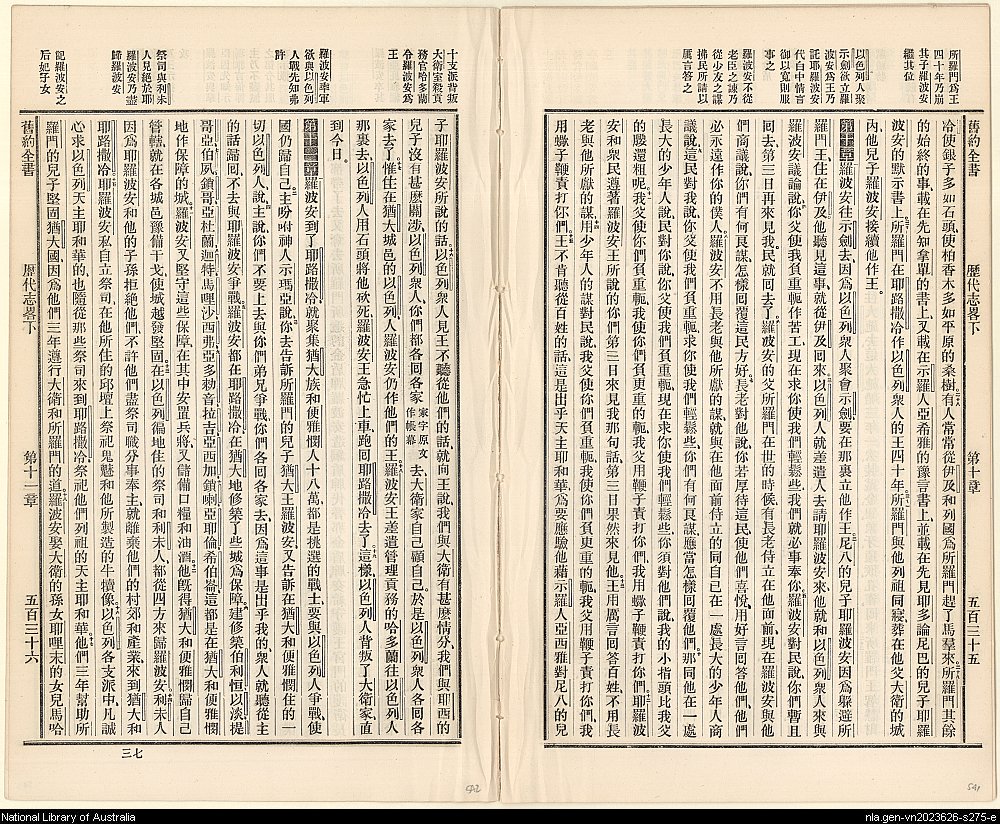 舊約全書 歷代志畧下 第十章 五百三十五
所羅門爲王
四十年乃崩
其子羅波安
繼其位
以色列人聚
示劍欲立羅
波安爲王乃
託耶羅波安
代白中情言
御以寬則服
事之
羅波安不從
老臣之諫乃
從少友之謀
拂民所請以
厲言答之
冷使銀子多如石頭使柏香木多如平原的桑樹有人常常從伊及和列國爲所羅門趕了馬羣來所羅門其餘
的始終的事載在先知拿單的書上又載在示羅人亞希雅的豫言書上並載在先見耶多論尼巴的兒子耶羅
波安的默示書上所羅門在耶路撒冷作以色列衆人的王四十年所羅門與他列祖同寢葬在他父大衛的城
內他兒子羅波安接續他作王
第十章羅波安往示劍去因爲以色列衆人聚會示劍要在那裏立他作王尼八的兒子耶羅波安因爲躲避所
羅門王住在伊及他聽見這事就從伊及囘來以色列人就差遣人去請耶羅波安來他就和以色列衆人來與
羅波安議論說你父使我們負重軛作苦工現在求你使我們輕鬆些我們就必事奉你羅波安對民說你們暫且
囘去第三日再來見我民就囘去了羅波安的父所羅門在世的時候有長老侍立在他面前現在羅波安與他
們商議說你們有何良謀怎樣囘覆這民方好長老對他說你若厚待這民使他們喜悅用好言囘答他們他們
必永遠作你的僕人羅波安不用長老與他所獻的謀就與在他面前侍立的同自己在一處長大的少年人商
議說這民對我說你父使我們負重軛求你使我們輕鬆些你們有何良謀應當怎樣囘覆他們那同他在一處
長大的少年人說民對你說你父使我們負重軛現在求你使我們輕鬆些你須對他們說我的小指頭比我父
的腰還粗呢我父使你們負重軛我使你們負更重的軛我父用鞭子責打你們我用蠍子鞭責打你們耶羅波
安和衆民遵著羅波安王所說的你們第三日來見我那句話第三日果然來見他王用厲言囘答百姓不用長
老與他所獻的謀用少年人的謀對民說我父使你們負重軛我使你們負更重的軛我父用鞭子責打你們我
用蠍子鞭責打你們王不肯聽從百姓的話這是出乎天主耶和華爲要應驗他藉示羅人亞西雅對尼八的兒
十支派背叛
大衛室殺貢
務官哈多蘭
令羅波安爲
王
羅波安率軍
欲與以色列
人戰先知弗
許
祭司與利未
人見絕於耶
羅波安乃盡
歸羅波安
記羅波安之
后妃子女
子耶羅波安所說的話以色列衆人見王不聽從他們的話就向王說我們與大衛有甚麽情分我們與耶西的
兒子沒有甚麽關涉以色列衆人你們都各囘各家家字原文作帳幕去大衛家自己顧自己於是以色列衆人各囘各
家去了惟住在猶大城邑的以色列人羅波安仍作他們的王羅波安王差遣管理貢務的哈多蘭往以色列人
那裏去以色列人用石頭將他砍死羅波安王急忙上車跑囘耶路撒冷去了這樣以色列人背叛了大衛家直
到今日
第十一章羅波安到了耶路撒冷就聚集猶大族和便雅憫人十八萬都是挑選的戰士要與以色列人爭戰使
國仍歸自己主吩咐神人示瑪亞說你去告訴所羅門的兒子猶大王羅波安又告訴在猶大和便雅憫住的一
切以色列人說主說你們不要上去與你們弟兄爭戰你們各囘各家去因爲這事是出乎我的衆人就聽從主
的話歸囘不去與耶羅波安爭戰羅波安都在耶路撒冷在猶大地修築了些城爲保障建修築伯利恒以淡提
哥亞伯夙鎖哥亞杜蘭迦特馬哩沙西弗亞多勑音拉吉亞西加鎖喇亞耶倫希伯崙這都是在猶大和便雅憫
地作保障的城羅波安又堅守這些保障在其中安置兵將又儲備口糧和油酒他旣得猶大和便雅憫歸自己
管轄就在各城邑豫備干戈使城越發堅固在以色列徧地住的祭司和利未人都從四方來歸羅波安利未人
因爲耶羅波安和他的子孫拒絕他們不許他們盡祭司職分事奉主就離棄他們的村郊和產業來到猶大和
耶路撒冷耶羅波安私自立祭司在他所住的邱壇上祭祀鬼魅和他所製造的牛犢像以色列各支派中凡誠
心求以色列天主耶和華的也隨從那些祭司來到耶路撒冷祭祀他們列祖的天主耶和華他們三年幫助所
羅門的兒子堅固猶大國因爲他們三年遵行大衛和所羅門的道羅波安娶大衛的孫女耶哩末的女兒馬哈
舊約全書 歷代志畧下 第十一章 五百三十六
三七
542
541
National Library of Australia
nla.gen-vn2023626-s275-e